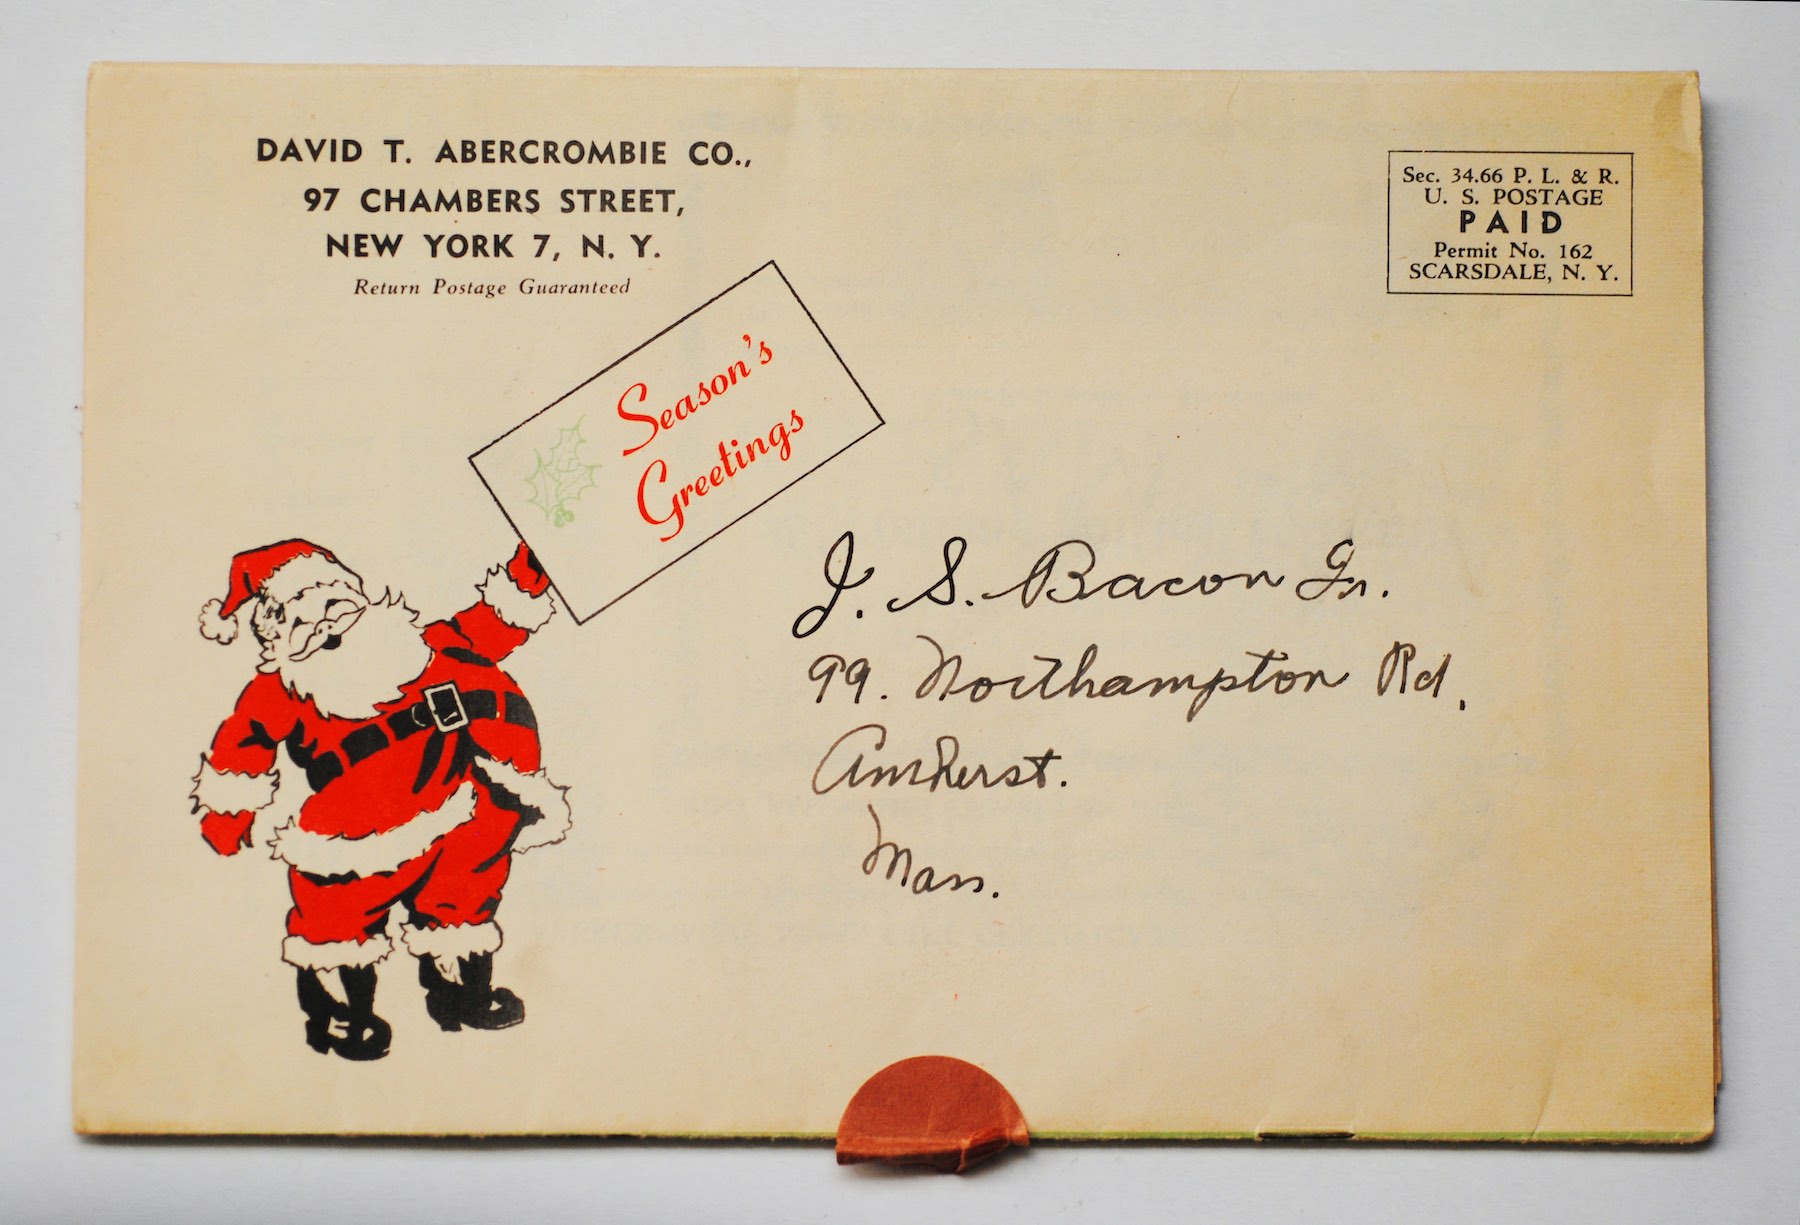 DAVID T. ABERCROMBIE CO.,
97 CHAMBERS STREET,
NEW YORK 7, N. Y.
Return Postage Guaranteed
Sec. 34.66 P. L. & R.
U. S. POSTAGE
PAID
Permit No. 162
SCARSDALE, N. Y.
Season's
Greetings
J. S. Bacon Jr.
99. Northampton Rd.
Amherst.
Mass.